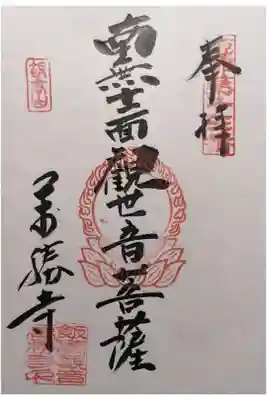 奉拝
南無十一面觀世音菩薩
萬勝寺